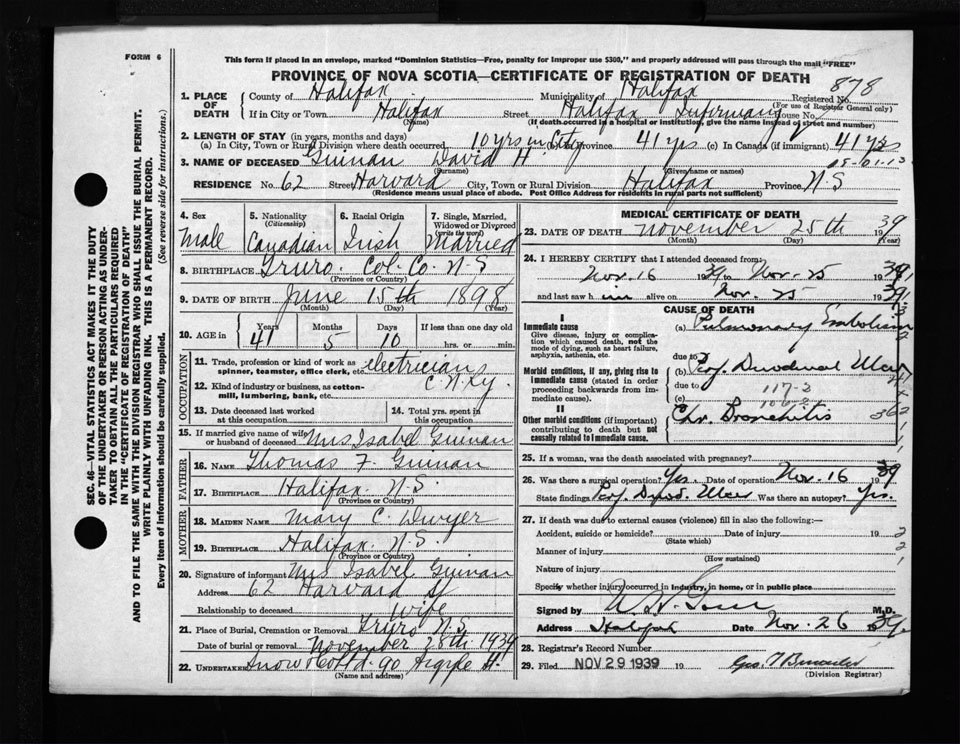 FORM 6
This form if placed in an envelope, marked "Dominion Statistics—Free, penalty for improper use $300," and properly addressed will pass through the mail "FREE"
PROVINCE OF NOVA SCOTIA—CERTIFICATE OF REGISTRATION OF DEATH
878
1. PLACE OF DEATH
County of Halifax Municipality of Halifax Registered No.
(For use of Registrar General only)
If in City or Town Halifax Street Halifax Infirmary House No.
(Name) (If death occurred in a hospital or institution, give the name instead of street and number)
2. LENGTH OF STAY (in years, months and days)
(a) In City, Town or Rural Division where death occurred 10 yrs in City (b) Province 41 yrs (c) In Canada (if immigrant) 41 yrs
3. NAME OF DECEASED Guinan David H.
(Surname) (Given name or names)
RESIDENCE No. 62 Street Harvard City, Town or Rural Division Halifax Province N.S
(Residence means usual place of abode. Post Office Address for residents in rural parts not sufficient)
SEC. 46—VITAL STATISTICS ACT MAKES IT THE DUTY
OF THE UNDERTAKER OR PERSON ACTING AS UNDER-
TAKER TO OBTAIN ALL THE PARTICULARS REQUIRED
IN THE "CERTIFICATE OF REGISTRATION OF DEATH"
AND TO FILE THE SAME WITH THE DIVISION REGISTRAR WHO SHALL ISSUE THE BURIAL PERMIT.
WRITE PLAINLY WITH UNFADING INK. THIS IS A PERMANENT RECORD.
Every item of information should be carefully supplied. (See reverse side for instructions.)
4. Sex Male
5. Nationality (Citizenship) Canadian
6. Racial Origin Irish
7. Single, Married, Widowed or Divorced (write the word) Married
8. BIRTHPLACE Truro. Col. Co. N.S
(Province or Country)
9. DATE OF BIRTH June 15th 1898
(Month) (Day) (Year)
10. AGE in Years 41 Months 5 Days 10 If less than one day old hrs. or min.
OCCUPATION
11. Trade, profession or kind of work as spinner, teamster, office clerk, etc. electrician
12. Kind of industry or business, as cotton-mill, lumbering, bank, etc. C. N. Ry.
13. Date deceased last worked at this occupation
14. Total yrs. spent in this occupation
15. If married give name of wife or husband of deceased Mrs Isabel Guinan
FATHER
16. NAME Thomas F. Guinan
17. BIRTHPLACE Halifax. N.S.
(Province or Country)
MOTHER
18. MAIDEN NAME Mary C. Dwyer
19. BIRTHPLACE Halifax. N.S.
(Province or Country)
20. Signature of informant Mrs Isabel Guinan
Address 62 Harvard St
Relationship to deceased wife
21. Place of Burial, Cremation or Removal Truro N.S
Date of burial or removal November 28th 1939
22. UNDERTAKER Snow & Co Ltd. 90 Argyle St.
(Name and address)
MEDICAL CERTIFICATE OF DEATH
23. DATE OF DEATH November 25th 1939
(Month) (Day) (Year)
24. I HEREBY CERTIFY that I attended deceased from:
Nov. 16 1939 to Nov. 25 1939
and last saw him alive on Nov. 25 1939
CAUSE OF DEATH
I
Immediate cause
Give disease, injury or complication which caused death, not the mode of dying, such as heart failure, asphyxia, asthenia, etc.
(a) Pulmonary Embolism
due to
Morbid conditions, if any, giving rise to immediate cause (stated in order proceeding backwards from immediate cause).
(b) Perf. Duodenal Ulcer
due to
(c)
117-2
106-2
II
Other morbid conditions (if important) contributing to death but not causally related to immediate cause.
Chr. Bronchitis
362
25. If a woman, was the death associated with pregnancy?
26. Was there a surgical operation? Yes. Date of operation Nov. 16 1939
State findings Perf. Duod. Ulcer Was there an autopsy? Yes.
27. If death was due to external causes (violence) fill in also the following:—
Accident, suicide or homicide? Date of injury 19
(State which)
Manner of injury
(How sustained)
Nature of injury
Specify whether injury occurred in industry, in home, or in public place
Signed by M.D.
Address Halifax Date Nov. 26 1939.
28. Registrar's Record Number
29. Filed NOV 29 1939 19
(Division Registrar)